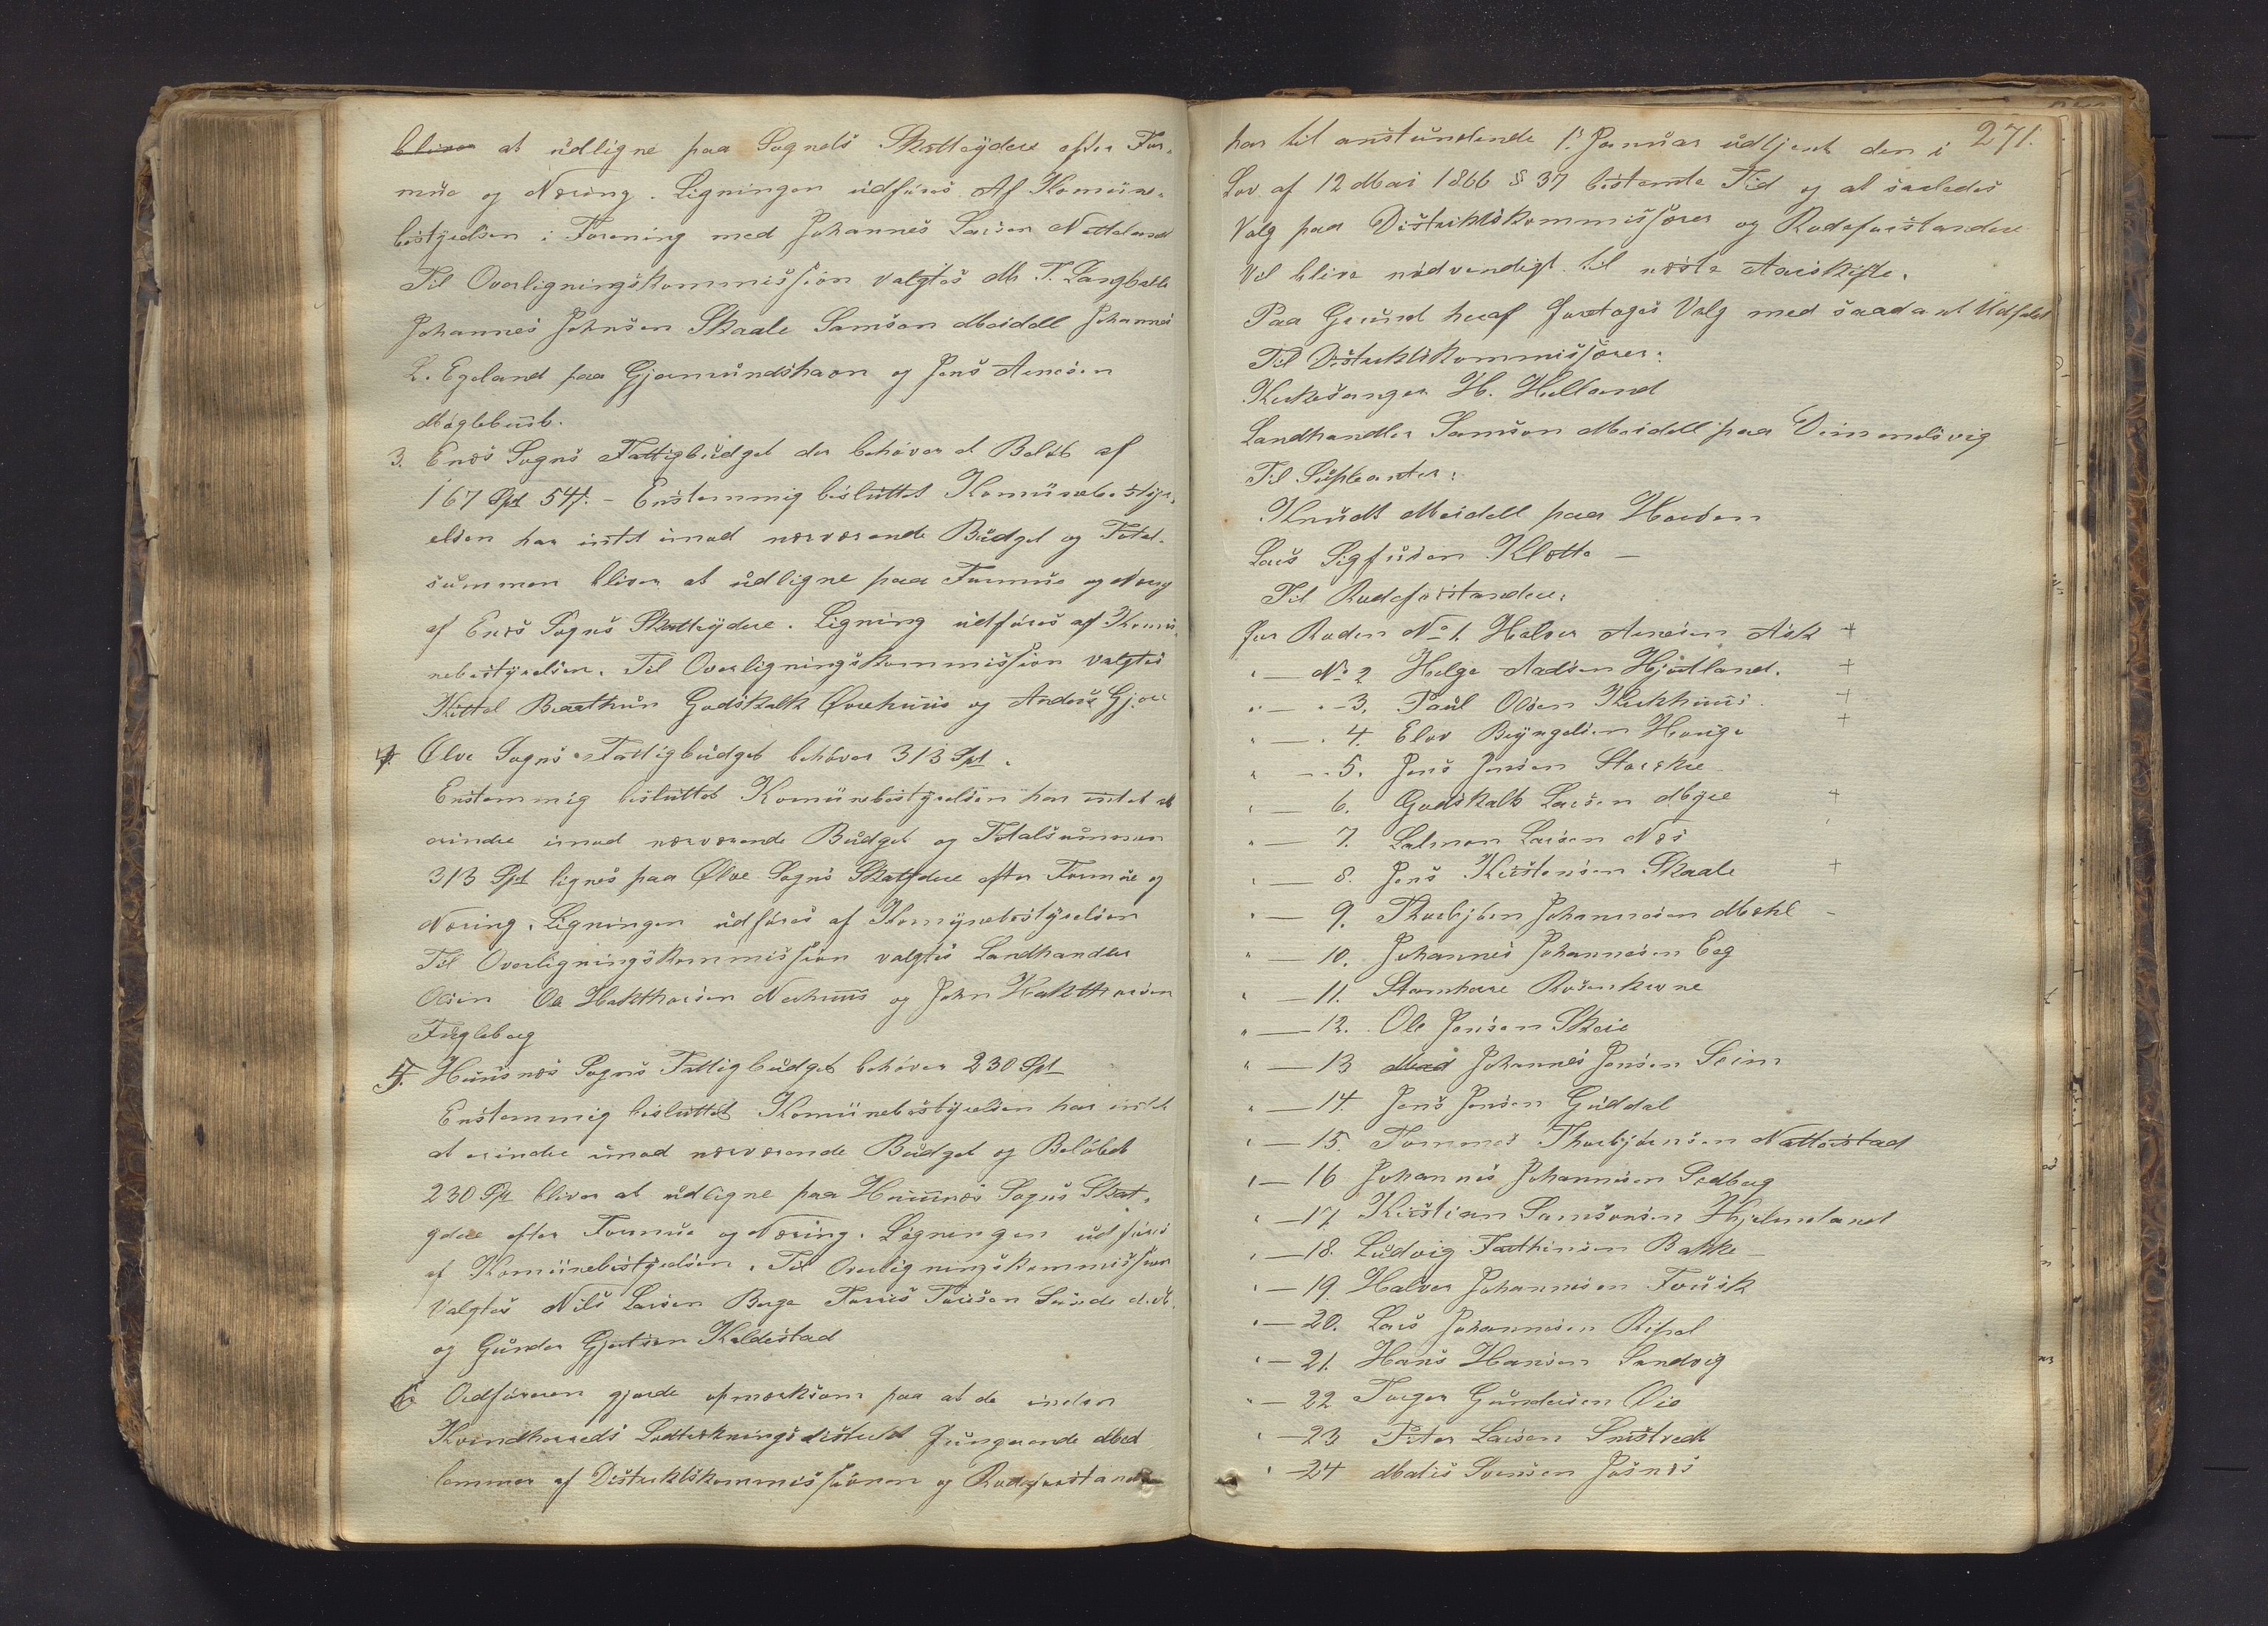 bliver at udligne paa Sognets Skatteydere efter For-
mue og Næring. Ligningen udføres Af Komune-
bestyrelsen i Forening med Johannes Larsen Netteland
Til Overligningskommission valgtes M T. Langballe
Johannes Johnsen Skaale Samson Meidell Johannes
L. Egeland paa Gjermundshavn og Jens Arnesen
Møglebust.
3. Enæs Sogns Fattigbudget der behøver et Beløb af
167 Spd 54 ß. - Enstemmig besluttet Komunebestyr-
elsen har intet imod nærværende Budget og Total-
summen bliver at udligne paa Formue og Næring
af Enæs Sogns Skatteydere. Ligning udføres af Komu-
nebestyrelsen. Til Overligningskommission valgtes
Kittel Braathun Godskalk Øvrehuus og Anders Gjere
4. Ølve Sogns Fattigbudget behøver 313 Spd.
Enstemmig besluttet Komunebestyrelsen har intet at
erindre imod nærværende Budget og Totalsummen
313 Spd lignes paa Ølve Sogns Skatydere efter Formue og
Næring. Ligningen udføres af Komunebestyrelsen
Til Overligningskommission valgtes Landhandler
Olsen Ole Hakthorsen Nerhuus og John Hakthorsen
Fugleberg
5. Huusnæs Sogns Fattigbudget behøver 230 Spd
Enstemmig besluttet Komunebestyrelsen har intet
at erindre imod nærværende Budget og Beløbet
230 Spd bliver at udligne paa Huusnæs Sogns Skat-
ydere efter Formue og Næring. Ligningen udføres
af Komunebestyrelsen. Til Overligningskommission
Valgtes Nils Larsen Berge Tørris Tørrisen Sunde
og Gunder Gjertsen Kaldestad
6 Ordføreren gjorde opmærksom paa at de inden
Kvindherreds Lodtrækningsdistrict fungerende Med
lemmer af Distriktskommissionen og Rodeforstandere
271.
har til anstundende 1. Januar udtjent den i
Lov af 12 Mai 1866 § 37 bestemte Tid og at saaledes
Valg paa Distriktskommissærer og Rodeforstandere
Vil blive nødvendigt til næste Aarskifte.
Paa Grund heraf foretages Valg med saadant Udfald
Til Distriktskommissærer:
Kirkesanger H. Helland
Landhandler Samson Meidell paa Dimmelsvig
Til Supleanter:
Knudt Meidell paa
Lars Sigfusen Kløtte —
Til Rodeforstandere:
for Roden No 1. Halvor Arnesen Ask +
" — No 2 Helge Aadsen Hjørtland. +
" — " - 3. Paul Olsen Kirkhuus. +
" — " 4. Elov Bryngelsen Hauge +
" — - 5. Jens Jensen Storskre
" — 6. Godskalk Larsen Myre +
" — 7. Salmon Larsen Næs
" — 8. Jens Kristensen Skaale +
" — 9. Thorbjørn Johannesen Mehl -
" — 10. Johannes Johannesen Eeg
" — 11. Stamherre Rosenkrone
" — 12. Ole Jensen Skeie
" — 13 Mad Johannes Jensen Seim
" — 14. Jens Jensen Guddal
" — 15. Tommes Thorbjørnsen Nattestad
" — 16 Johannes Johannesen Sedberg
" — 17. Kristian Samsonsen Hjelmeland
" — 18. Ludvig Bakke —
" — 19. Halvor Johannesen
" — 20. Lars Johannesen Ripel
" — 21. Hans Hansen Sandvig
" — 22 Torger Gundersen Øie
" — 23 Peter Larsen
" — 24 Matis Svensen